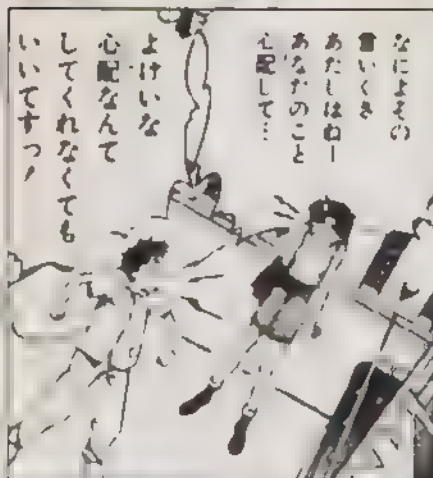 なによその
言いぐさ
あたしはねー
あなたのこと
心配して…
よけいな
心配なんて
してくれなくても
いいですっ!